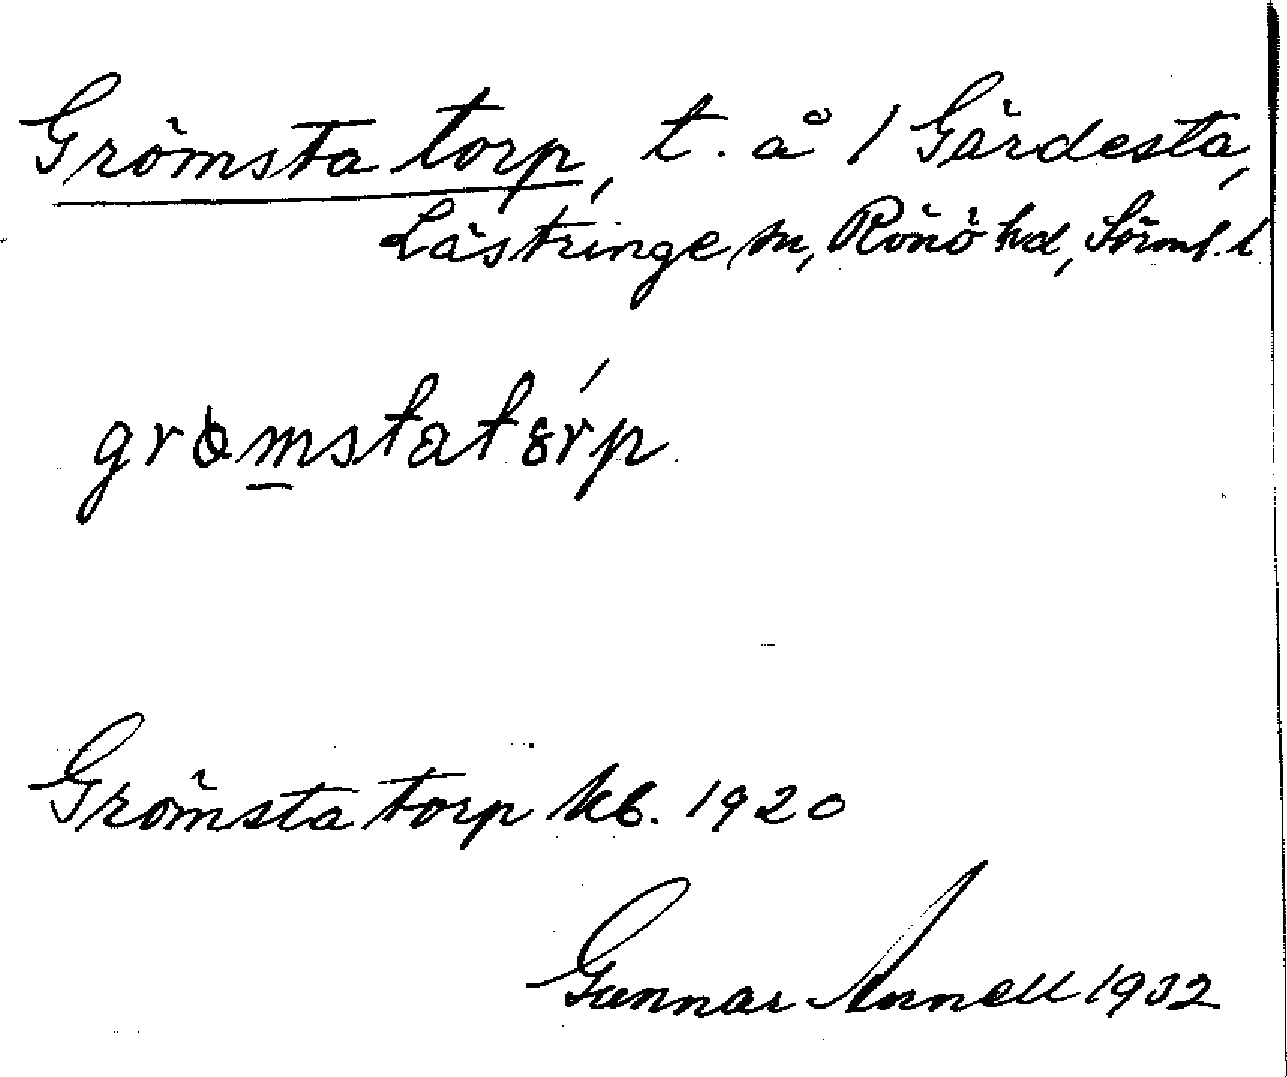 Grömsta torp, t. å / Gärdesta,
Lästringe sn, Rönö hd, Sörml. l
gromstatorp
Grömsta torp kb. 1920
Gunnar Annell 1932